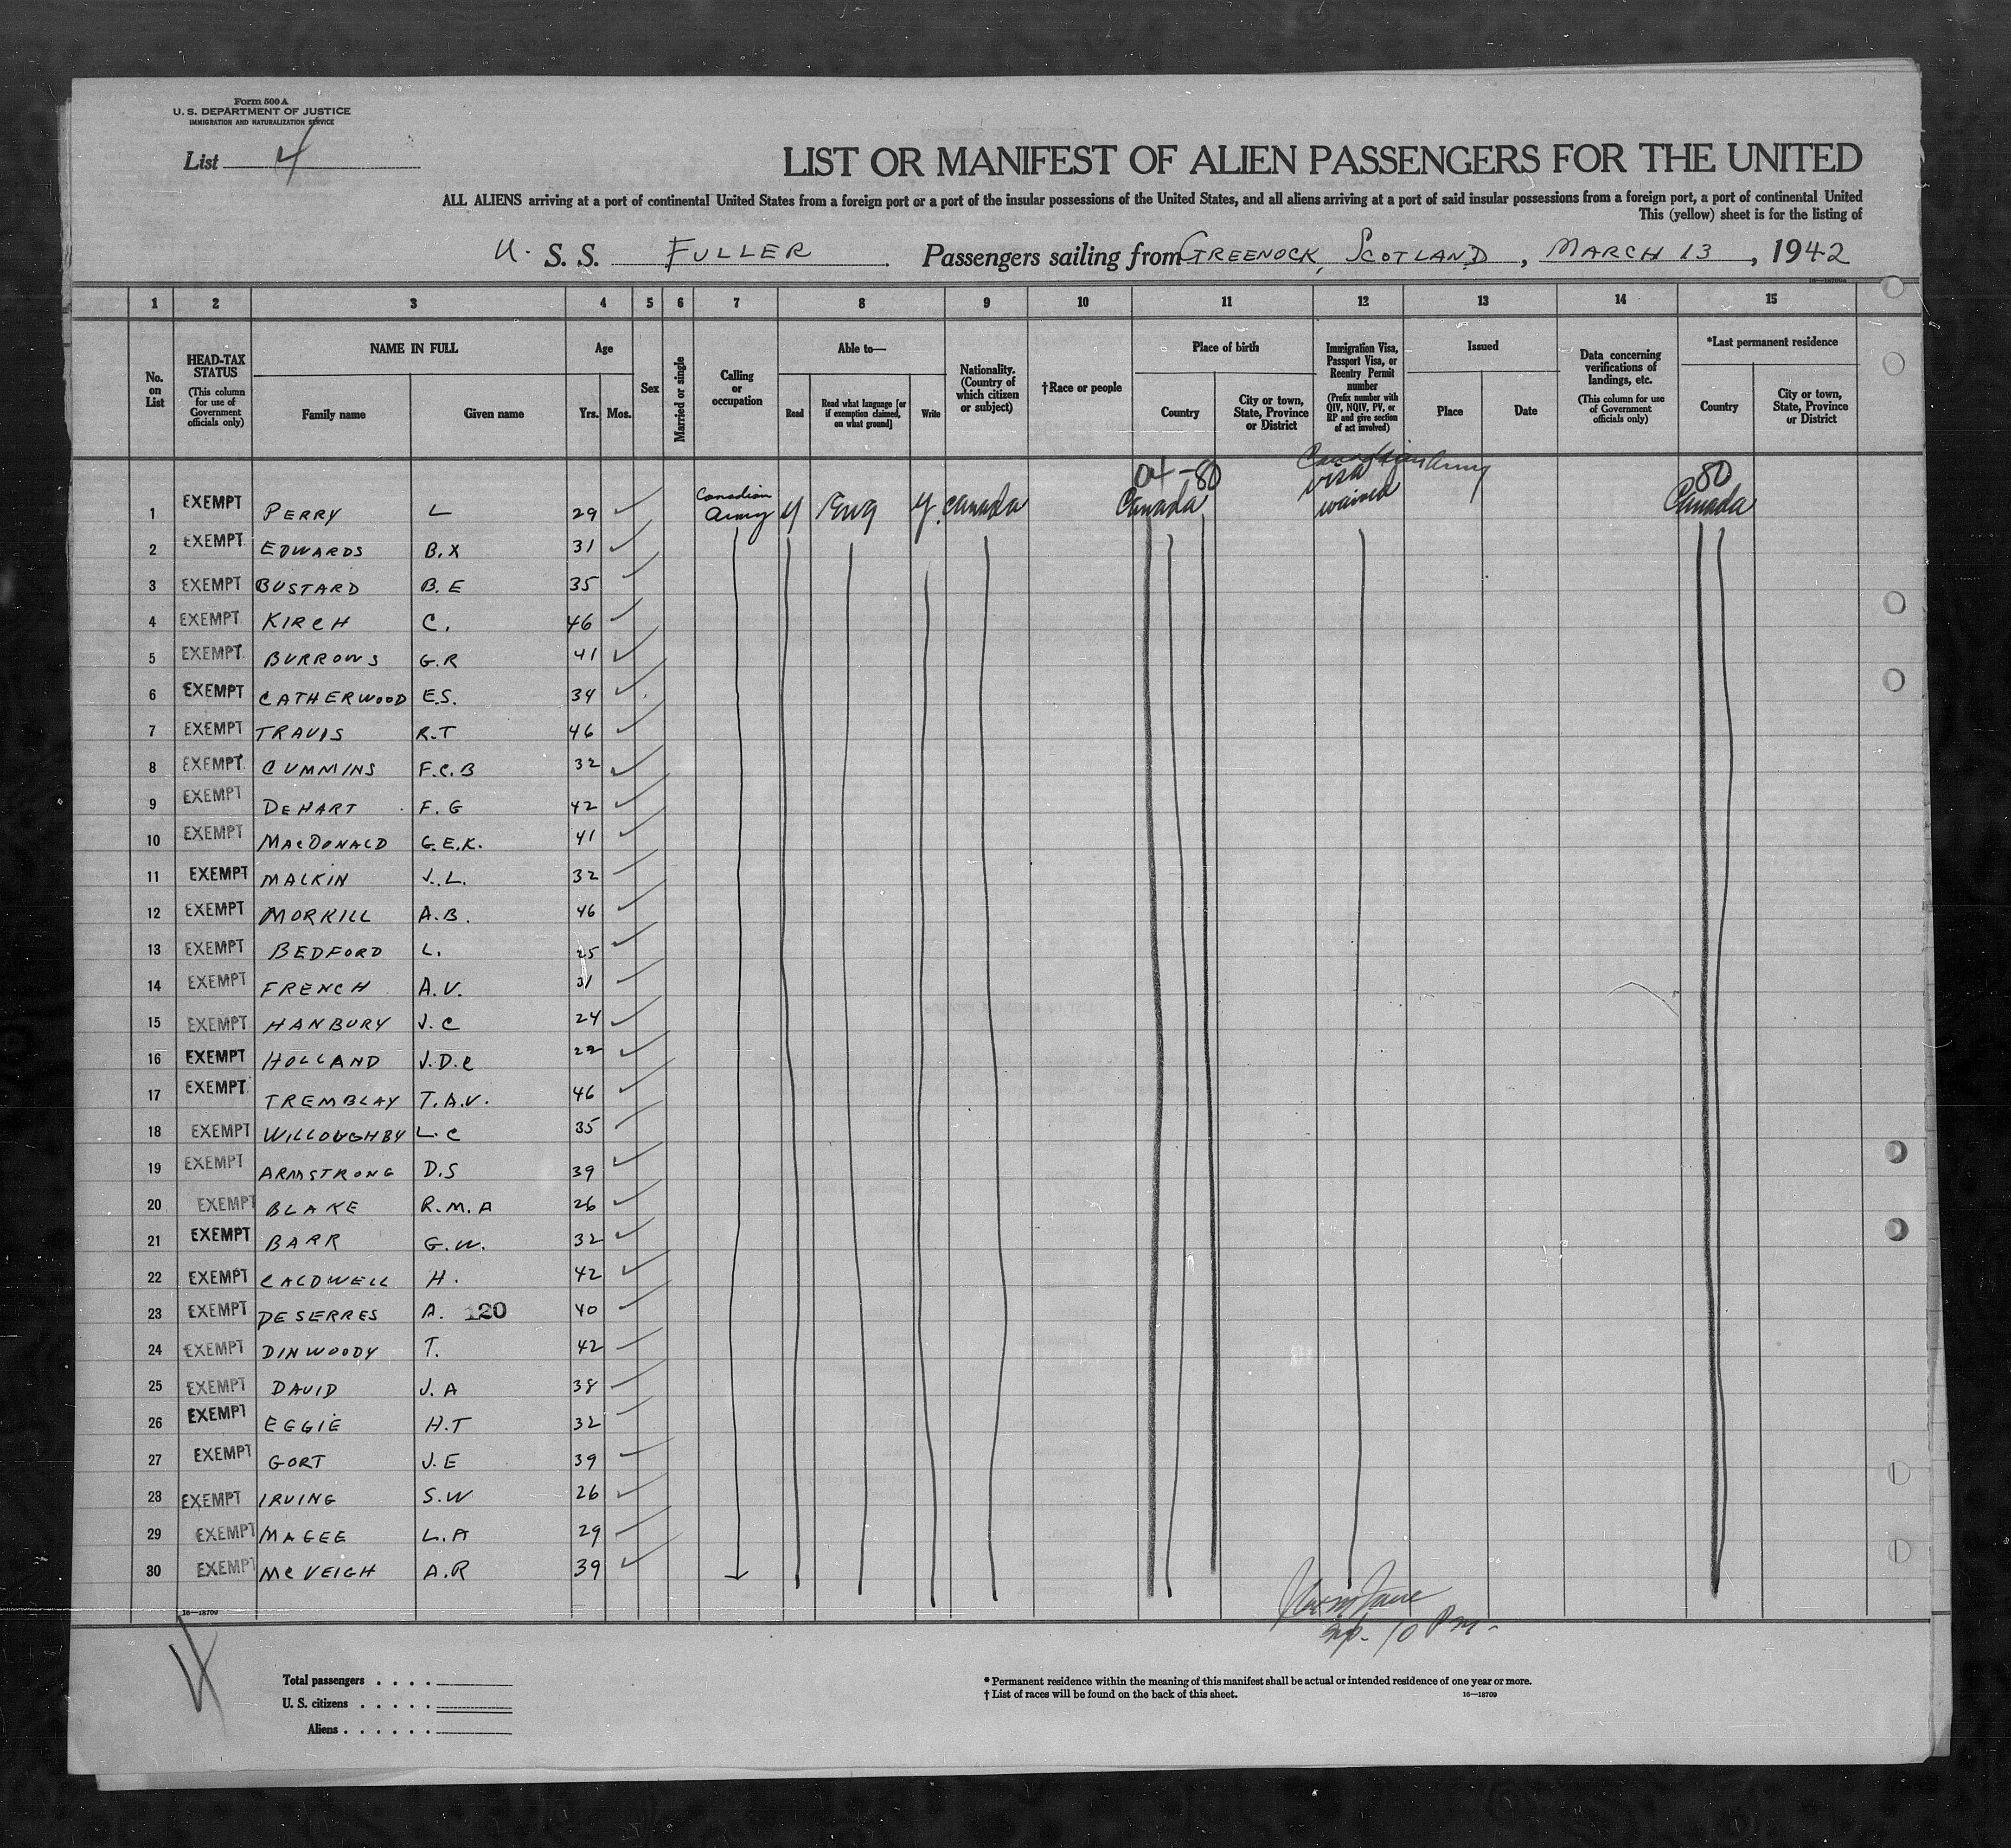 Form 500 A
U. S. DEPARTMENT OF JUSTICE
IMMIGRATION AND NATURALIZATION SERVICE
List 4
LIST OR MANIFEST OF ALIEN PASSENGERS FOR THE UNITED
ALL ALIENS arriving at a port of continental United States from a foreign port or a port of the insular possessions of the United States, and all aliens arriving at a port of said insular possessions from a foreign port, a port of continental United
This (yellow) sheet is for the listing of
U. S. S. FULLER Passengers sailing from GREENOCK, SCOTLAND, MARCH 13, 1942
16—18709
1 2 3 4 5 6 7 8 9 10 11 12 13 14 15
No. on List
HEAD-TAX STATUS (This column for use of Government officials only)
NAME IN FULL
Family name
Given name
Age
Yrs. Mos.
Sex
Married or single
Calling or occupation
Able to—
Read
Read what language [or if exemption claimed, on what ground]
Write
Nationality. (Country of which citizen or subject)
†Race or people
Place of birth
Country
City or town, State, Province or District
Immigration Visa, Passport Visa, or Reentry Permit number (Prefix number with QIV, NQIV, PV, or RP and give section of act involved)
Issued
Place
Date
Data concerning verifications of landings, etc. (This column for use of Government officials only)
*Last permanent residence
Country
City or town, State, Province or District
04-80 Canadian Army 80
1 EXEMPT PERRY L 29 Canadian Army y Eng y. Canada Canada visa waived Canada
2 EXEMPT EDWARDS B.X 31
3 EXEMPT BUSTARD B.E 35
4 EXEMPT KIRCH C. 46
5 EXEMPT BURROWS G.R 41
6 EXEMPT CATHERWOOD E.S. 34
7 EXEMPT TRAVIS R.T 46
8 EXEMPT CUMMINS F.C.B 32
9 EXEMPT DEHART F.G 42
10 EXEMPT MACDONALD G.E.K. 41
11 EXEMPT MALKIN J.L. 32
12 EXEMPT MORKILL A.B. 46
13 EXEMPT BEDFORD L. 25
14 EXEMPT FRENCH A.V. 31
15 EXEMPT HANBURY J.C 24
16 EXEMPT HOLLAND J.D.C 22
17 EXEMPT TREMBLAY T.A.V. 46
18 EXEMPT WILLOUGHBY L.C 35
19 EXEMPT ARMSTRONG D.S 39
20 EXEMPT BLAKE R.M.A 26
21 EXEMPT BARR G.W. 32
22 EXEMPT CALDWELL H. 42
23 EXEMPT DESERRES A. 120 40
24 EXEMPT DINWOODY T. 42
25 EXEMPT DAVID J.A 38
26 EXEMPT EGGIE H.T 32
27 EXEMPT GORT J.E 39
28 EXEMPT IRVING S.W 26
29 EXEMPT MAGEE L.A 29
30 EXEMPT MCVEIGH A.R 39
16—18709
10 Pm.
4
Total passengers . . . .
U. S. citizens . . . . .
Aliens . . . . . .
* Permanent residence within the meaning of this manifest shall be actual or intended residence of one year or more.
† List of races will be found on the back of this sheet.
16—18709